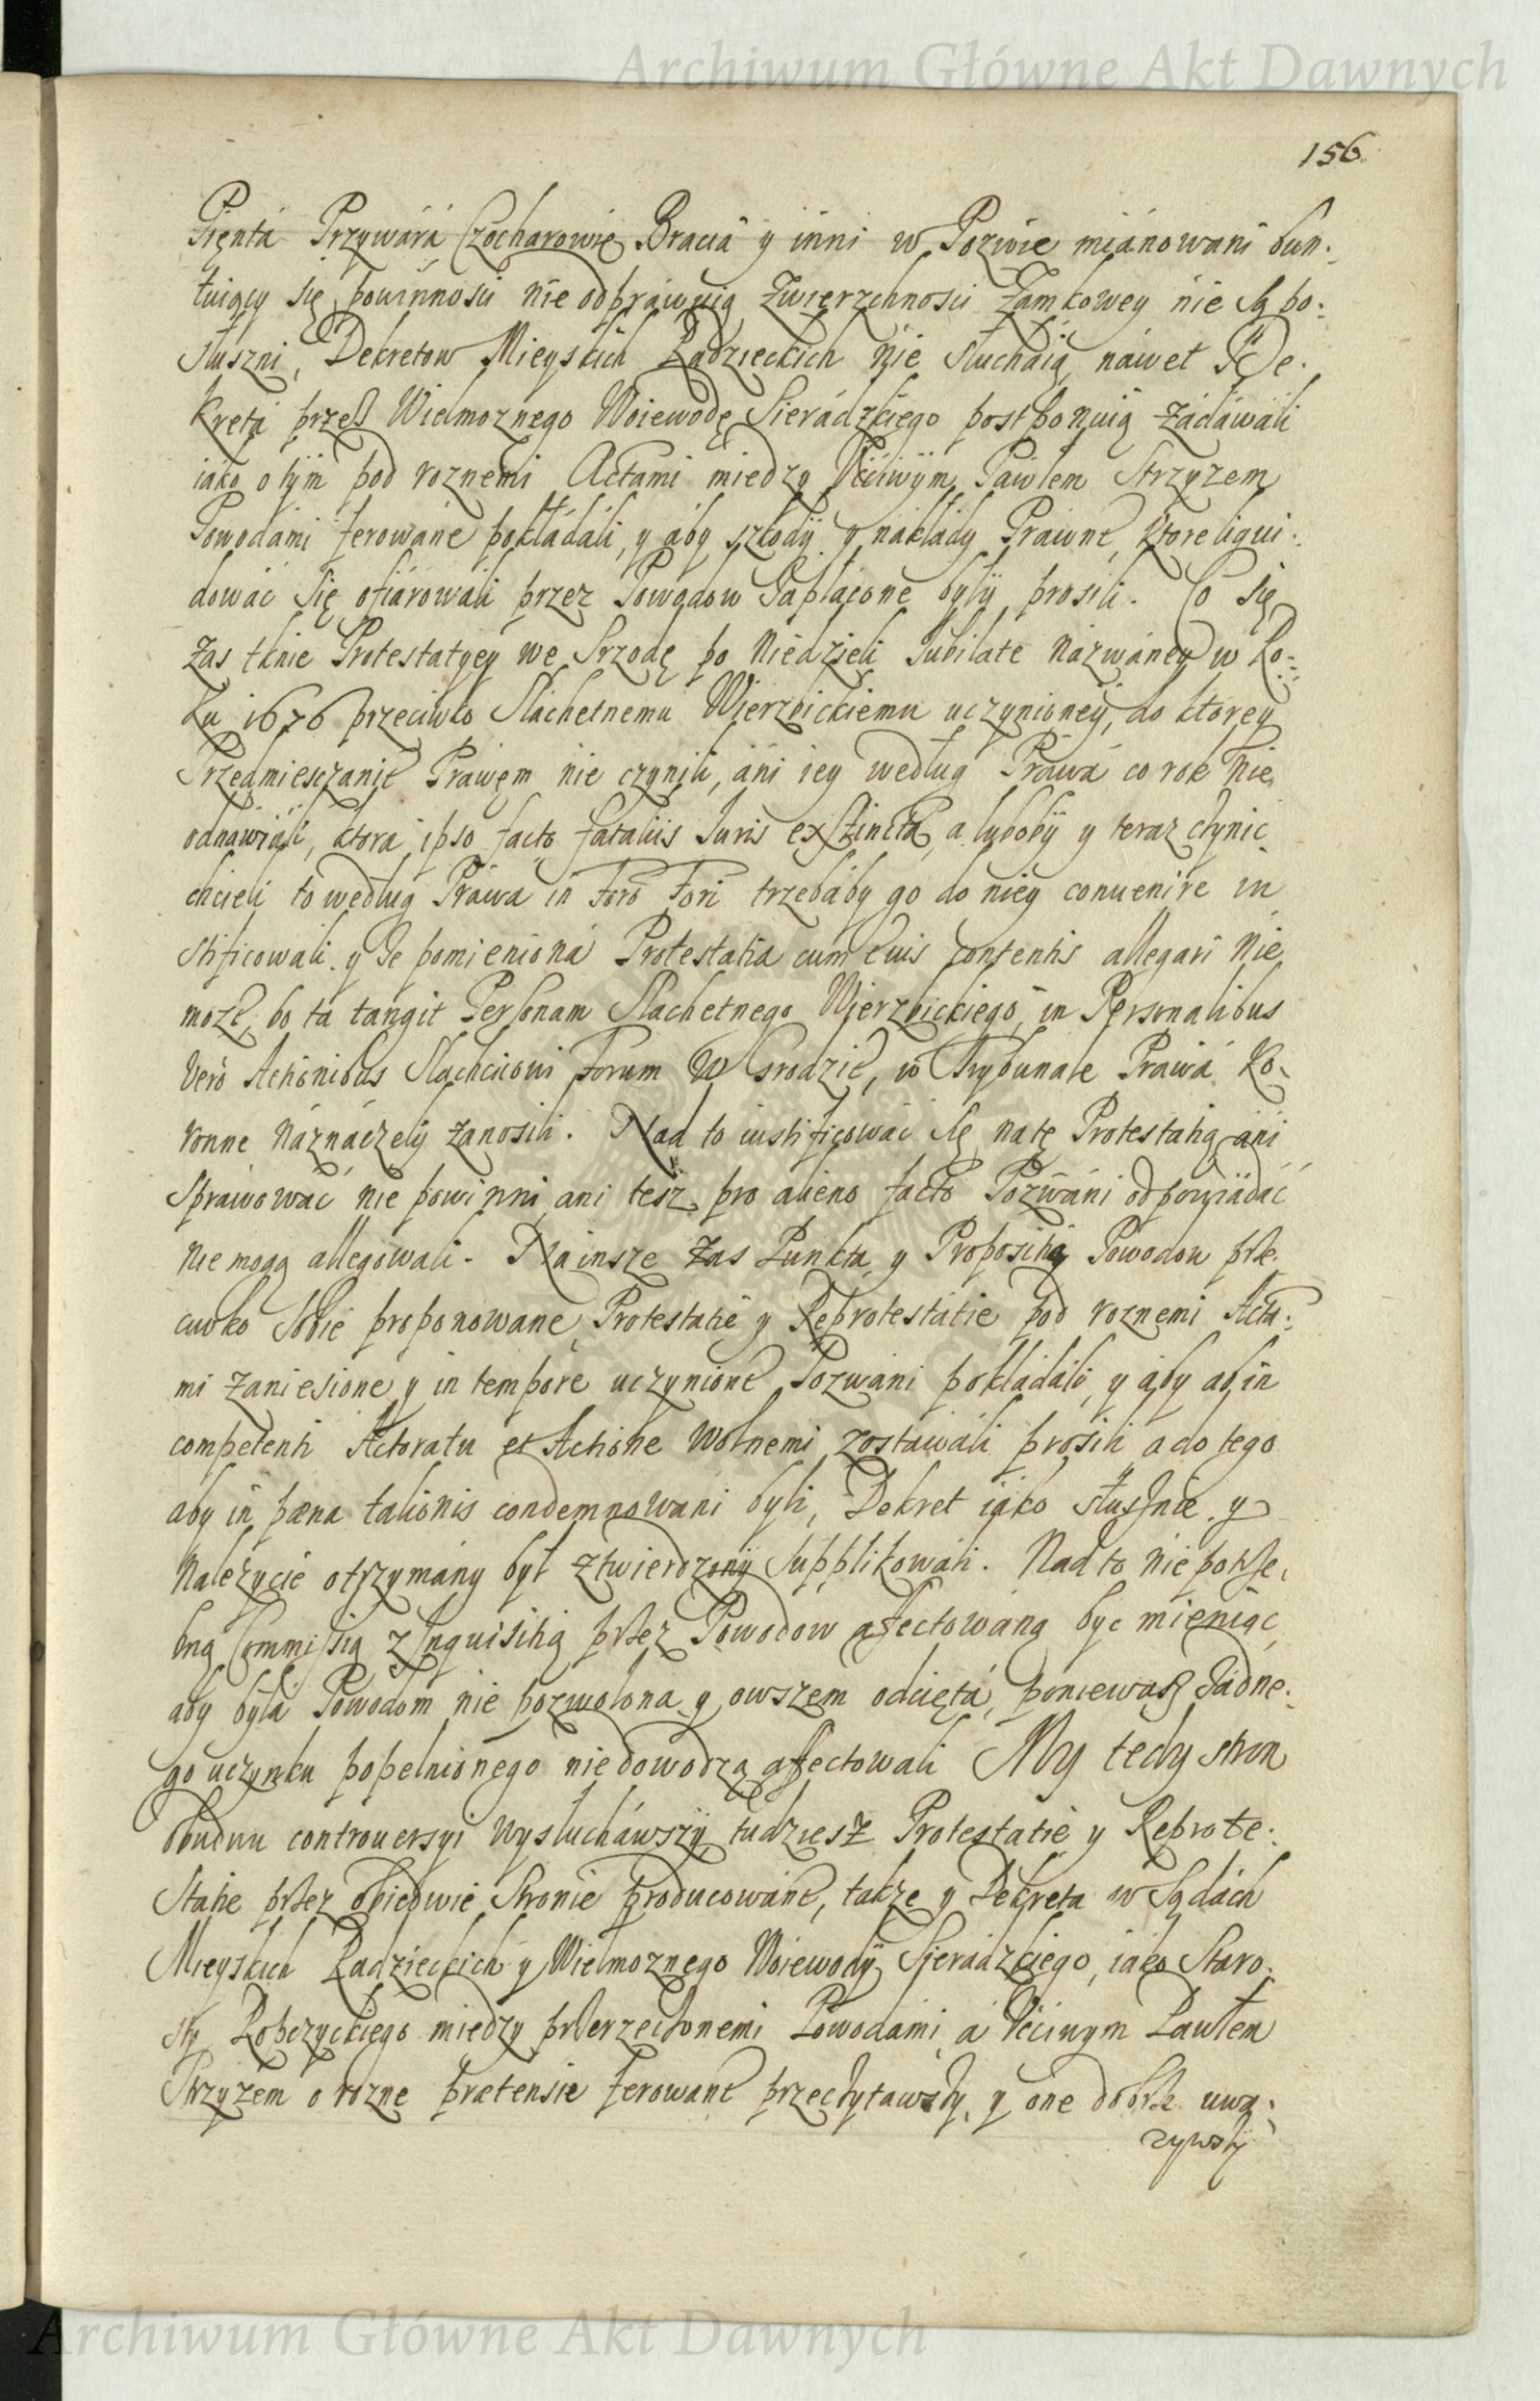 Archiwum Główne Akt Dawnych
156.
Pięntá Przywárá Czocharowie Bracia y inni w Pozwie miánowani bun:
tuiący się powinnosci nie odpráwuią Zwierzchnosci Zamkowey nie są po:
słuszni, Dekretow Mieyskich Radzieckich nie słucháią, náwet y De:
kretá przeß Wielmoznego Woiewodę Sierádzkiego postponuią zádáwáli
iáko o tÿm pod roznemi Actami miedzy Vćciwÿm Páwłem Strzyzem
Powodámi ferowáne pokłádáli, y áby szkodÿ y nakłády Prawne, ktore liqui:
dowáć się ofiárowáli przez Powodow zapłácone byłÿ prosili. Co się
zas tknie Protestatyey we Srzodę po Niedzieli Jubilate názwáney w Ro:
ku 1676 przeciwko Slachetnemu Wierzbickiemu uczynioneÿ, do ktorey
Przedmiesczanie Práwem nie czynili, áni iey według Prawá co rok nie
odnawiáli, ktora ipso facto fataliis Iuris exstincta, a lubobÿ y teraz czynic
chcieli to według Práwa in foro fori trzebáby go do niey convenire in
stificowali. y ze pomienioná Protestatia cum suis contentis allegari nie
moze, bo ta tangit Personam Slachetnego Wierzbickiego, in Personalibus
verò Actionibus Slachcicowi Forum w Grodzie, w Trybunale Prawá Ko:
ronne náznáczełÿ zanosili. Nad to iustificowáć się na tę Protestatią áni
spráwowáć nie powinni, ani tesz pro alieno facto Pozwáni odpowiádáć
nie mogą allegowali. Na insze zas Punkta y Propositią Powodow prze
ciwko sobie proponowane Protestatie y Reprotestátie pod roznemi Acta:
mi zaniesione y in tempore uczynione Pozwani pokładáli, y áby ab in
competenti Actoratu et Actione wolnemi zostawáli prosili a do tego
aby in pœna talionis condemnowáni byli, Dekret iáko słusznie y
nalezycie otrzymány był ztwierdzonÿ supplikowáli. Nad to niepotrze,
bną Commissią z Inquisitią przez Powodow affectowáną byc mieniąc,
aby była Powodom nie pozwolona y owszem odcięta, poniewasz zadne:
go uczynku popełnionego nie dowodzą affectowali My tedy stron
obudwu controuersyi wysłucháwszÿ, tudziesz Protestatie y Reprote:
statie przez obiedwie stronie producowáne, takze y Dekreta w Sądách
Mieyskich Radzieckich y Wielmoznego Woiewodÿ Sierádzkiego, iáko Staro:
stÿ Ropczyckiego miedzy przerzeczonemi Powodami, a Vćciwym Pawłem
Strzyzem o rozne prætensie ferowane przeczytawszy, y one dobrze uwa:
zywszÿ
Archiwum Główne Akt Dawnych